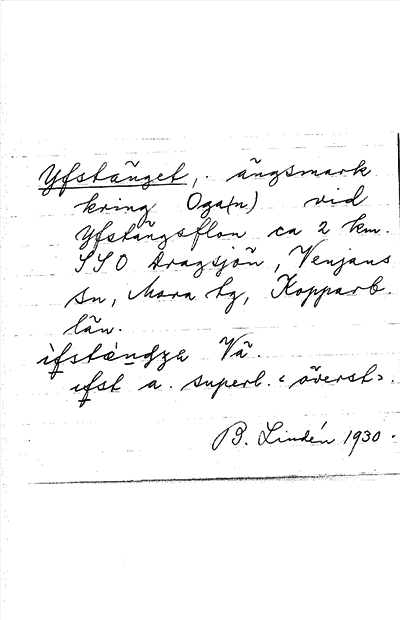 Yfstänget, ängsmark
kring Oga(n) vid
Yfstängsflon ca 2 km.
SSO Dragsjön, Venjans
sn, Mora tg, Kopparb.
län.
Vä.
a. superl. "överst".
B. Lindén 1930.